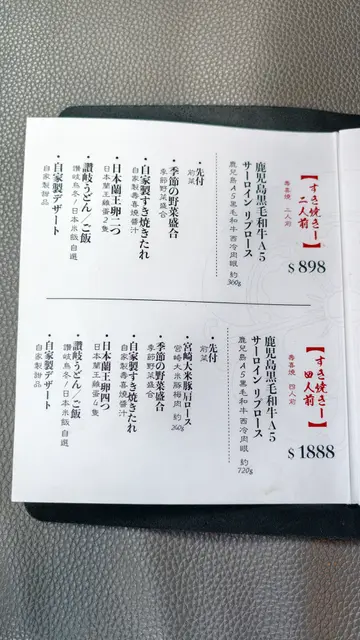 【すき焼きー二人前】
壽喜燒 二人前
$898
鹿児島黒毛和牛A5
サーロイン リブロース
鹿兒島A5黑毛和牛西冷肉眼 約360g
・先付
前菜
・季節の野菜盛合
季節野菜盛合
・自家製すき焼きたれ
自家製壽喜燒醬汁
・日本蘭王卵二つ
日本蘭王雞蛋2隻
・讃岐うどん／ご飯
讚岐烏冬/日本米飯自選
・自家製デザート
自家製甜品
【すき焼きー四人前】
壽喜燒 四人前
$1888
鹿児島黒毛和牛A5
サーロイン リブロース
鹿兒島A5黑毛和牛西冷肉眼 約720g
・先付
前菜
・宮崎大米豚肩ロース
宮崎大米豚梅肉 約240g
・季節の野菜盛合
季節野菜盛合
・自家製すき焼きたれ
自家製壽喜燒醬汁
・日本蘭王卵四つ
日本蘭王雞蛋4隻
・讃岐うどん／ご飯
讚岐烏冬/日本米飯自選
・自家製デザート
自家製甜品